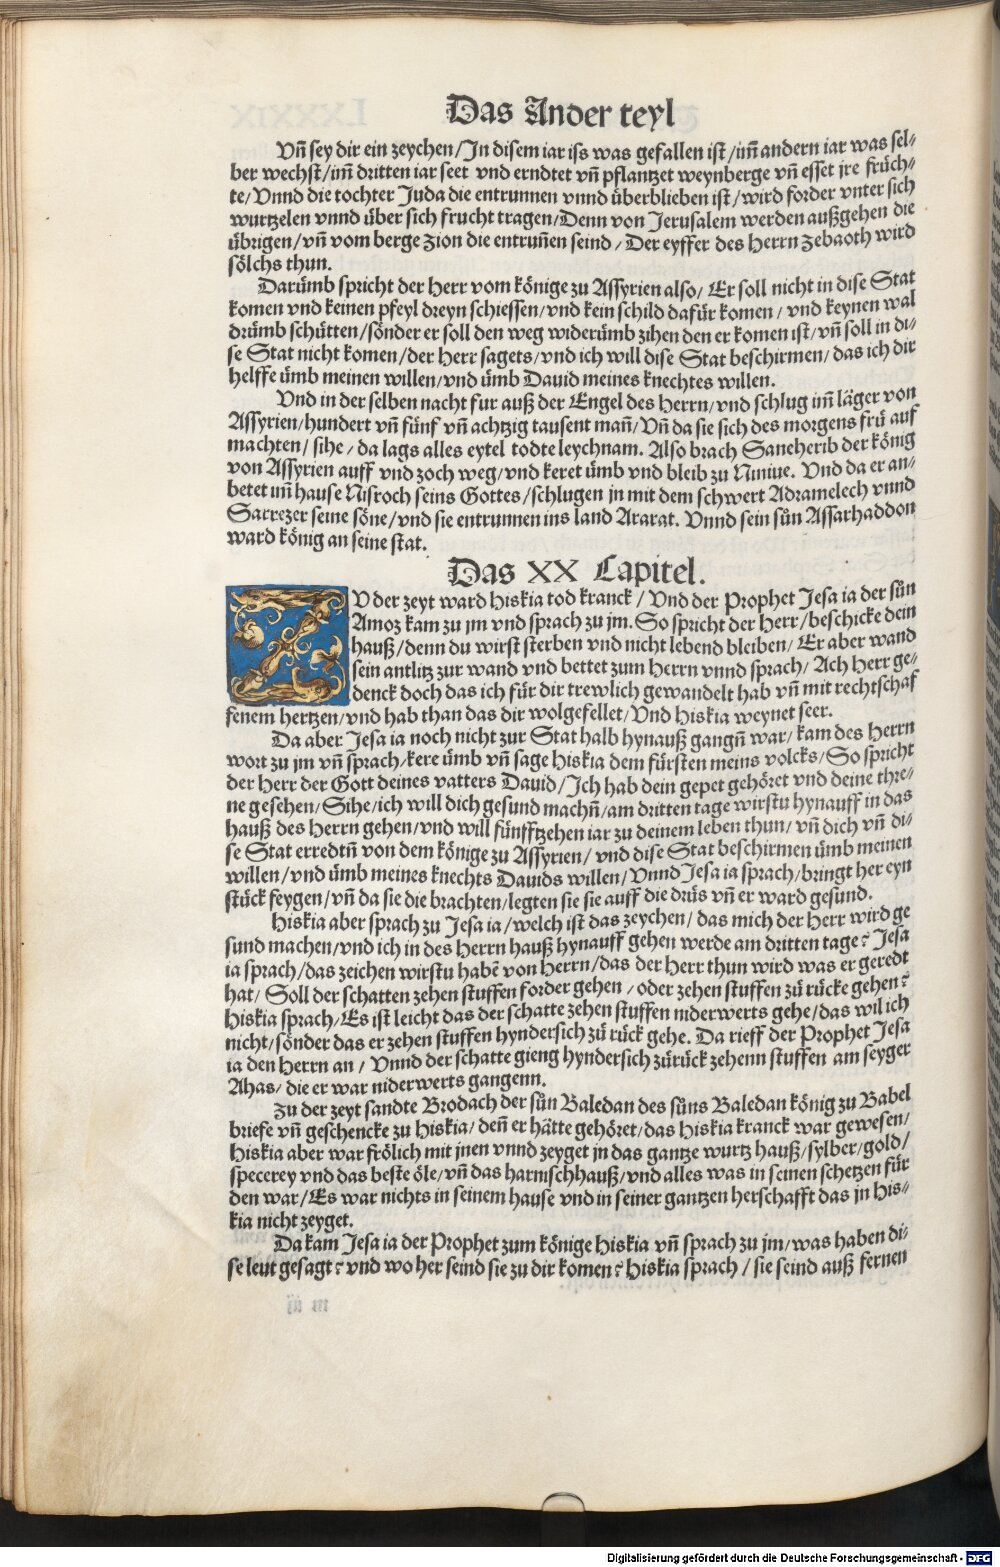 Das Ander teyl
Vñ sey dir ein zeychen/In disem iar iss was gefallen ist/im̃ andern iar was sel⸗
ber wechst/im̃ dritten iar seet vnd erndtet vñ pflantzet weynberge vñ esset jre früch⸗
te/Vnnd die tochter Juda die entrunnen vnnd überblieben ist/wird forder vnter sich
wurtzelen vnnd über sich frucht tragen/Denn von Jerusalem werden außgehen die
übrigen/vñ vom berge Zion die entruñen seind/Der eyffer des Herrn Zebaoth wird
sölchs thun.
Darümb spricht der Herr vom könige zu Assyrien also/Er soll nicht in dise Stat
komen vnd keinen pfeyl dreyn schiessen/vnd kein schild dafür komen/vnd keynen wal
drümb schütten/sönder er soll den weg widerümb zihen den er komen ist/vñ soll in di⸗
se Stat nicht komen/der Herr sagets/vnd ich will dise Stat beschirmen/das ich dir
helffe ümb meinen willen/vnd ümb Dauid meines knechtes willen.
Vnd in der selben nacht fur auß der Engel des Herrn/vnd schlug im̃ läger von
Assyrien/hundert vñ fünf vñ achtzig tausent mañ/Vñ da sie sich des morgens frü auf
machten/sihe/da lags alles eytel todte leychnam. Also brach Saneherib der könig
von Assyrien auff vnd zoch weg/vnd keret ümb vnd bleib zu Niniue. Vnd da er an⸗
betet im̃ hause Nisroch seins Gottes/schlugen jn mit dem schwert Adramelech vnnd
Sarezer seine söne/vnd sie entrunnen ins land Ararat. Vnnd sein sün Assarhaddon
ward könig an seine stat.
Das XX Capitel.
ZV der zeyt ward Hiskia tod kranck/Vnd der Prophet Jesa ia der sün
Amoz kam zu jm vnd sprach zu jm. So spricht der Herr/beschicke dein
hauß/denn du wirst sterben vnd nicht lebend bleiben/Er aber wand
sein antlitz zur wand vnd bettet zum Herrn vnnd sprach/Ach Herr ge⸗
denck doch das ich für dir trewlich gewandelt hab vñ mit rechtschaf
fenem hertzen/vnd hab than das dir wolgefellet/Vnd Hiskia weynet seer.
Da aber Jesa ia noch nicht zur Stat halb hynauß gangñ war/kam des Herrn
wort zu jm vñ sprach/kere ümb vñ sage Hiskia dem fürsten meins volcks/So spricht
der Herr der Gott deines vatters Dauid/Ich hab dein gepet gehöret vnd deine thre⸗
ne gesehen/Sihe/ich will dich gesund machñ/am dritten tage wirstu hynauff in das
hauß des Herrn gehen/vnd will fünfftzehen iar zu deinem leben thun/vñ dich vñ di⸗
se Stat erredtñ von dem könige zu Assyrien/vnd dise Stat beschirmen ümb meinen
willen/vnd ümb meines knechts Dauids willen/Vnnd Jesa ia sprach/bringt her eyn
stück feygen/vñ da sie die brachten/legten sie sie auff die drüs vñ er ward gesund.
Hiskia aber sprach zu Jesa ia/welch ist das zeychen/das mich der Herr wird ge
sund machen/vnd ich in des Herrn hauß hynauff gehen werde am dritten tage? Jesa
ia sprach/das zeichen wirstu habẽ von Herrn/das der Herr thun wird was er geredt
hat/Soll der schatten zehen stuffen forder gehen/oder zehen stuffen zü rücke gehen?
Hiskia sprach/Es ist leicht das der schatte zehen stuffen niderwerts gehe/das wil ich
nicht/sönder das er zehen stuffen hyndersich zü rück gehe. Da rieff der Prophet Jesa
ia den Herrn an/Vnnd der schatte gieng hyndersich zürück zehenn stuffen am seyger
Ahas/die er war niderwerts gangenn.
Zu der zeyt sandte Brodach der sün Baledan des süns Baledan könig zu Babel
briefe vñ geschencke zu Hiskia/deñ er hätte gehöret/das Hiskia kranck war gewesen/
Hiskia aber war frölich mit jnen vnnd zeyget jn das gantze wurtz hauß/sylber/gold/
specerey vnd das beste öle/vñ das harnischhauß/vnd alles was in seinen schetzen für
den war/Es war nichts in seinem hause vnd in seiner gantzen herschafft das jn His⸗
kia nicht zeyget.
Da kam Jesa ia der Prophet zum könige Hiskia vñ sprach zu jm/was haben di⸗
se leut gesagt? vnd wo her seind sie zu dir komen? Hiskia sprach/sie seind auß fernen
Digitalisierung gefördert durch die Deutsche Forschungsgemeinschaft - DFG